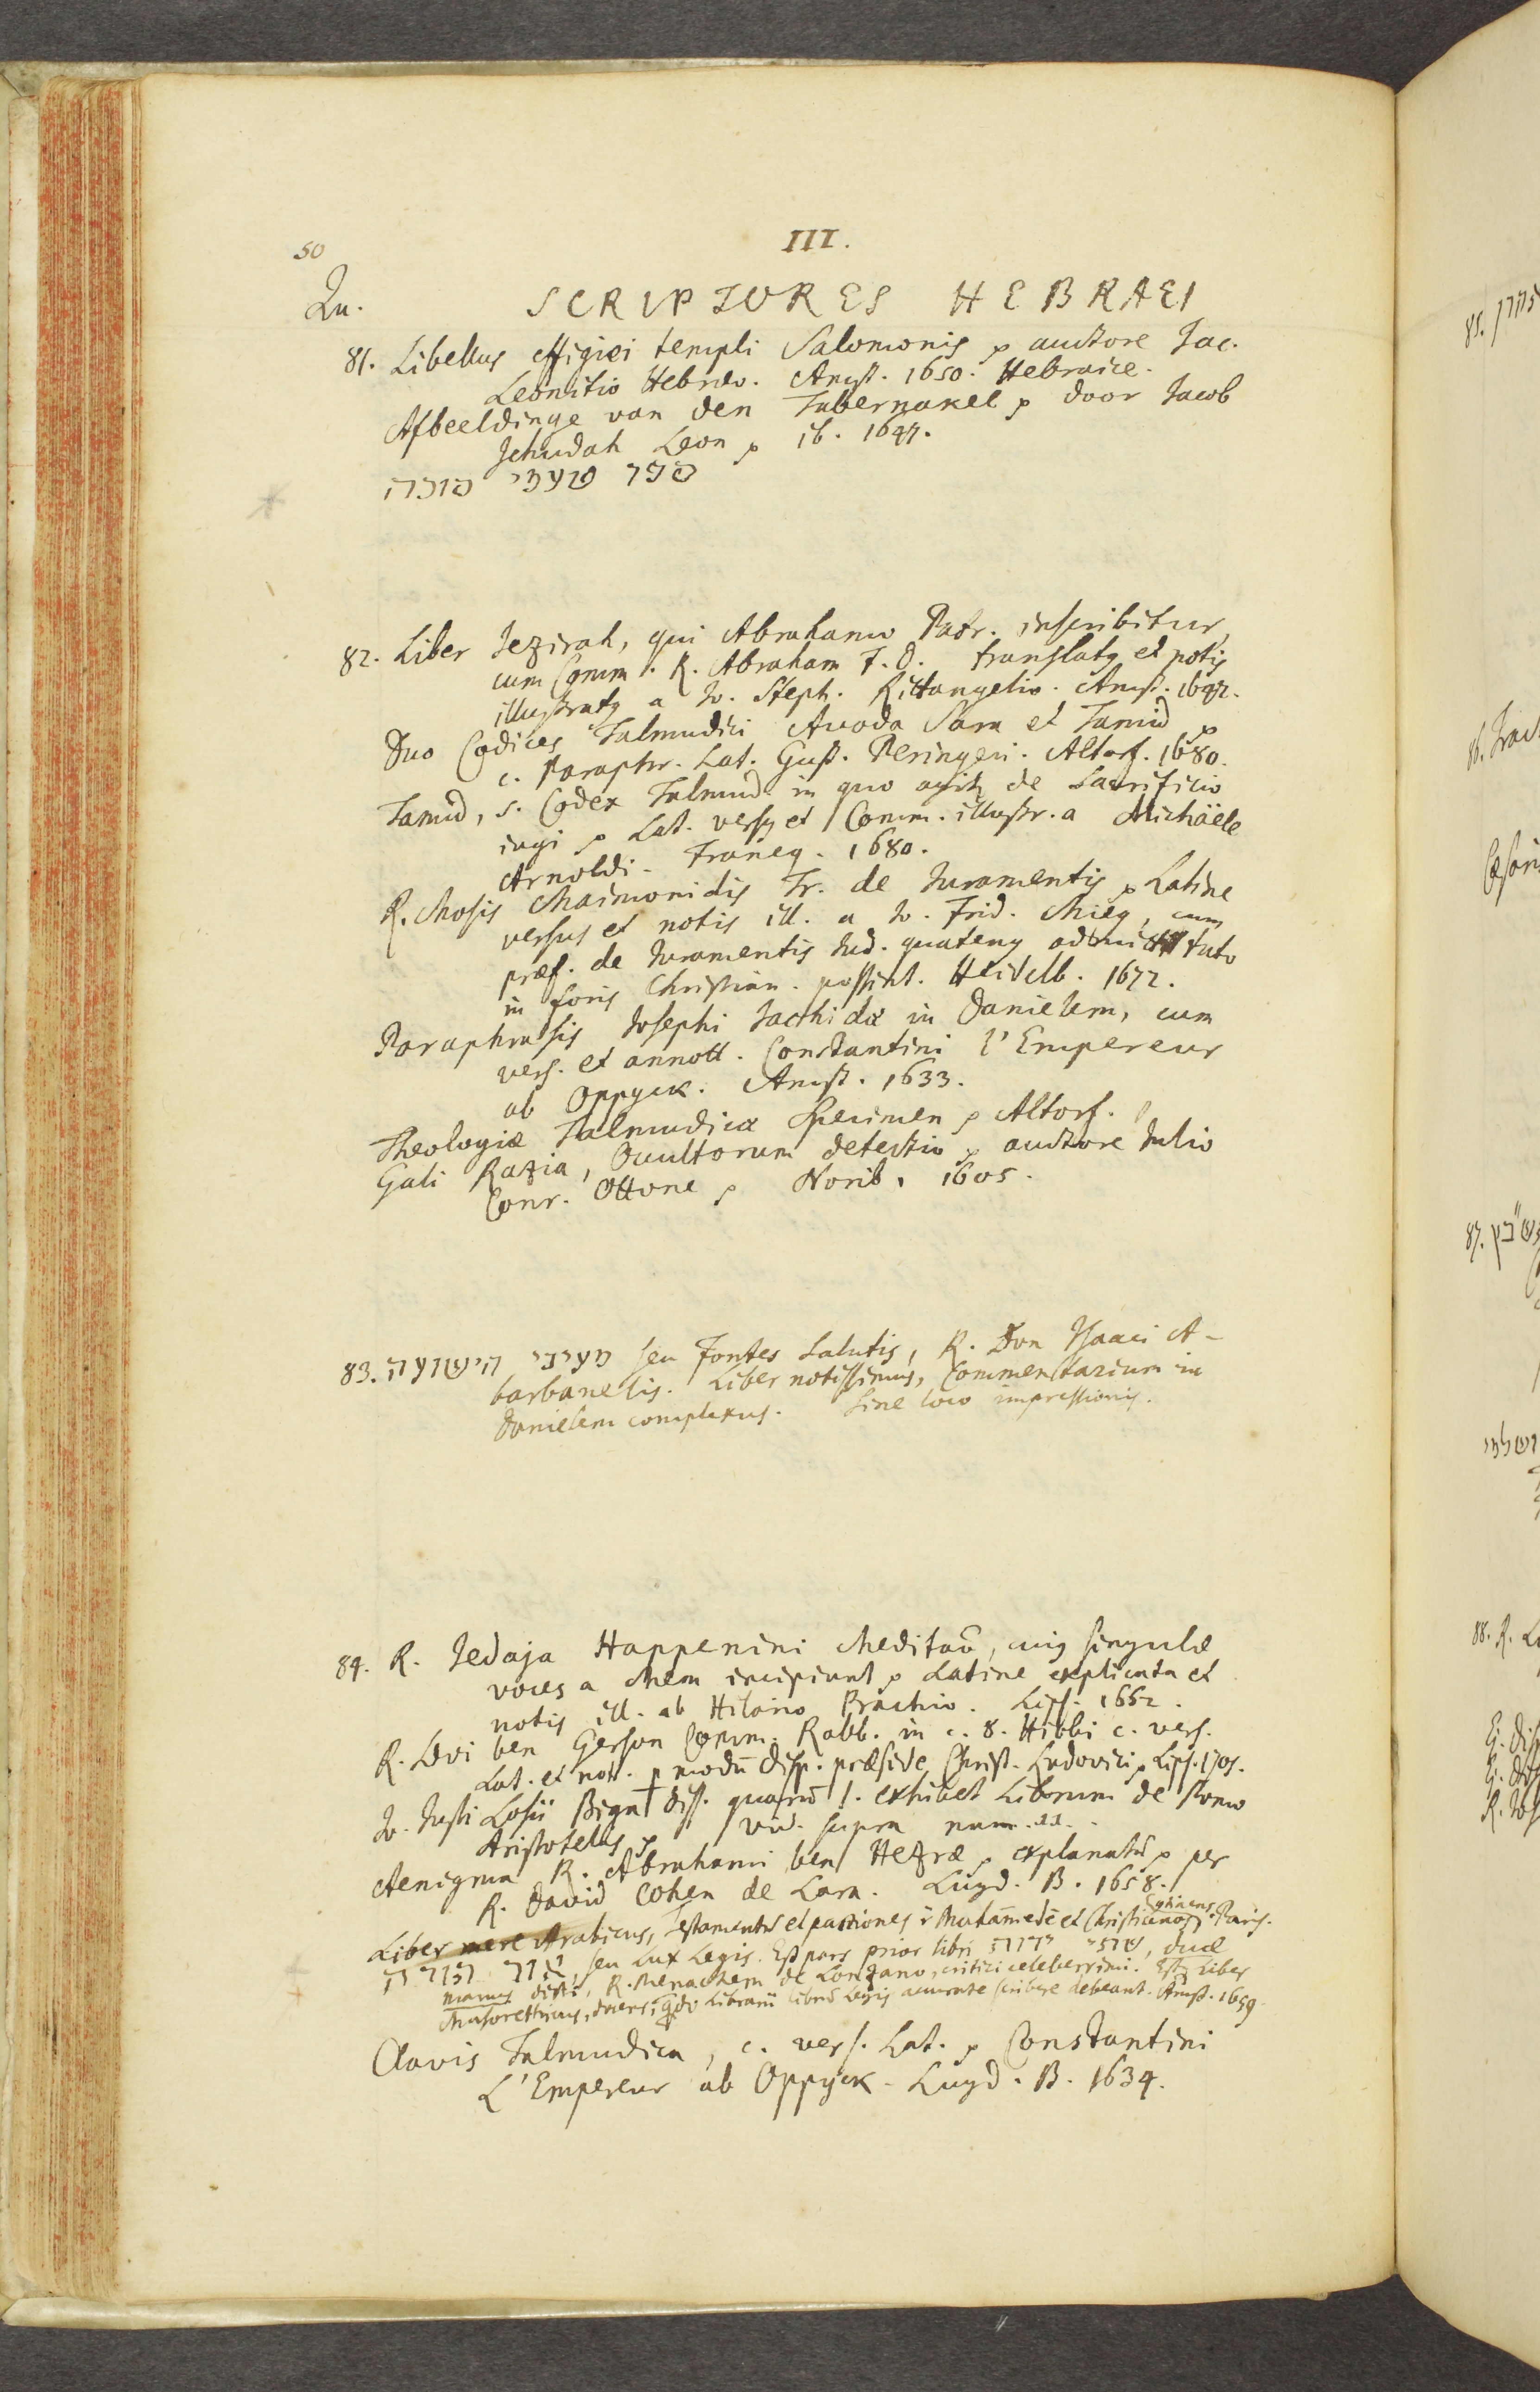 50
III.
Qu.
SCRIPTORES HEBRAEI
81. Libellus effigiei templi Salomonis p auctore Jac.
Leonitio Hebræo. Amst. 1650. Hebraice.
Afbeeldinge van den Tabernakel p door Jacob
Jehudah Leon p ib. 1647.
ספר
82. Liber Jezirah, qui Abrahamo Patr. inscribitur,
cum Comm. R. Abraham F. D. translatq et notis
illustratq a Jo. Steph. Rittangelio. Amst. 1642.
Duo Codices Talmudici Avoda Sara et Tamid p
c. Paraphr. Lat. Gust. Peringeri. Altorf. 1680.
Tamid, s. Codex Talmud. in quo agitr de Sacrificio
iugi p Lat. versq et Comm. illustr. a Michäele
Arnoldi. Franeq. 1680.
R. Mosis Maimonidis Tr. de Juramentis p Latine
versus et notis ill. a Jo. Frid. Mieg, cum
præf. de Juramentis Jud. quatenq admitti tuto
in foris Christian. possint. Heidelb. 1672.
Paraphrasis Josephi Jacchidæ in Danielem, cum
vers. et annott. Constantini l'Empereur
ab Oppyck. Amst. 1633.
Theologiæ Talmudicæ Specimen p Altorf.
Gali Razia, Occultorum detectio p auctore Julio
Conr. Ottone p Norib. 1605.
83. מעיני הישועה seu Fontes Salutis, R. Don Isaaci A-
barbanelis. Liber notissimus, Commentarium in
Danielem complexus. Sine loco impressionis.
84. R. Jedaja Happenini Meditaō, cuiq singulæ
voces a Mem incipiunt p Latine explicata et
notis ill. ab Hilario Prachio. Lips. 1662.
R. Levi ben Gerson Comm. Rabb. in c. 8. Hiobi c. vers.
Lat. et nott. p modū disp. præside Christ. Ludovici p Lips. 1705.
Jo. Justi Losii Biga diss. quarū 1. exhibet Librum de Pomo
Aristotelis p vid. supra num. 22.
Aenigma R. Abrahami ben Hezræ p explanatū p per
R. David Cohen de Lara. Lugd. B. 1658.
Liber mere Arabicus, Testamentū et pactiones ī Muhāmedē et Christianos cōtinens. Paris.
אור תורה, seu Lux Legis. Est pars prior libri שתי ידות, duæ
manus dicti, R. Menachem de Lonzano, critici celeberrimi. Estq Liber
Masorethicus, docens, qdo Librarii librū Legis accurate scribere debeant. Amst. 1659.
Clavis Talmudica, c. vers. Lat. p Constantini
L'Empereur ab Oppyck. Lugd. B. 1634.
85.
86. Tract
87.
88. R.